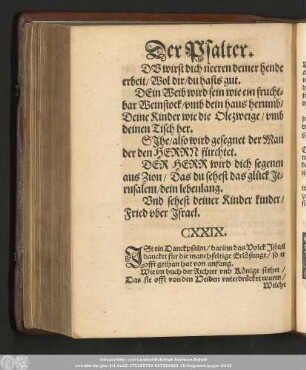 Der Psalter.
DV wirst dich neeren deiner hende
erbeit / Wol dir / du hasts gut.
DEin Weib wird sein wie ein frucht-
bar Weinstock / vmb dein haus herumb /
Deine Kinder wie die Olezweige / vmb
deinen Tisch her.
SIhe / also wird gesegnet der Man /
der den HERRN fürchtet.
DER HERR wird dich segenen
aus Zion / Das du sehest das glück Je-
rusalem / dein lebenlang.
Vnd sehest deiner Kinder kinder /
Fried vber Israel.
CXXIX.
IST ein Danckpsalm / darinn das Volck Israel
dancket für die manchfeltige Erlösunge / so er
offt gethan hat von anfang.
Wie im buch der Richter vnd Könige stehet /
Das sie offt von den Heiden vnterdrücket waren /
Welche